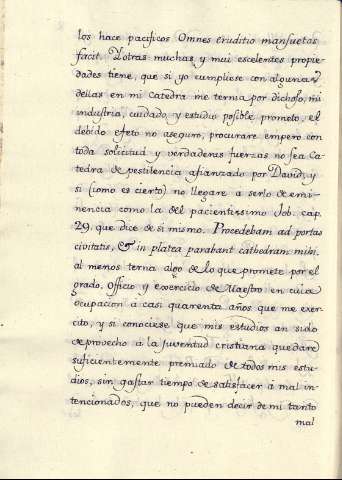 los hace pacificos Omnes eruditio mansuetos
facit. Y otras muchas, y mui escelentes propie-
dades tiene, que si yo cumpliese con alguna
dellas en mi Catedra me ternia por dichoso, mi
industria, cuidado, y estudio posible prometo, el
debido efeto no aseguro, procurare empero con
toda solicitud y verdaderas fuerzas no sea Ca-
tedra de pestilencia afianzado por David, y
si (como es cierto) no llegare a serlo de emi-
nencia como la del pacientissimo Job. cap.
29. que dice de si mismo. Procedebam ad portas
civitatis, & in platea parabant cathedram mihi.
al menos terna algo de lo que promete por el
grado. Officio y exercicio de Maestro en cuia
ocupacion á casi quarenta años que me exer-
cito, y si conociese que mis estudios an sido
de provecho á la juventud cristiana quedaré
suficientemente premiado de todos mis estu-
dios, sin gastar tiempo de satisfacer á mal in-
tencionados, que no pueden decir de mi tanto
mal